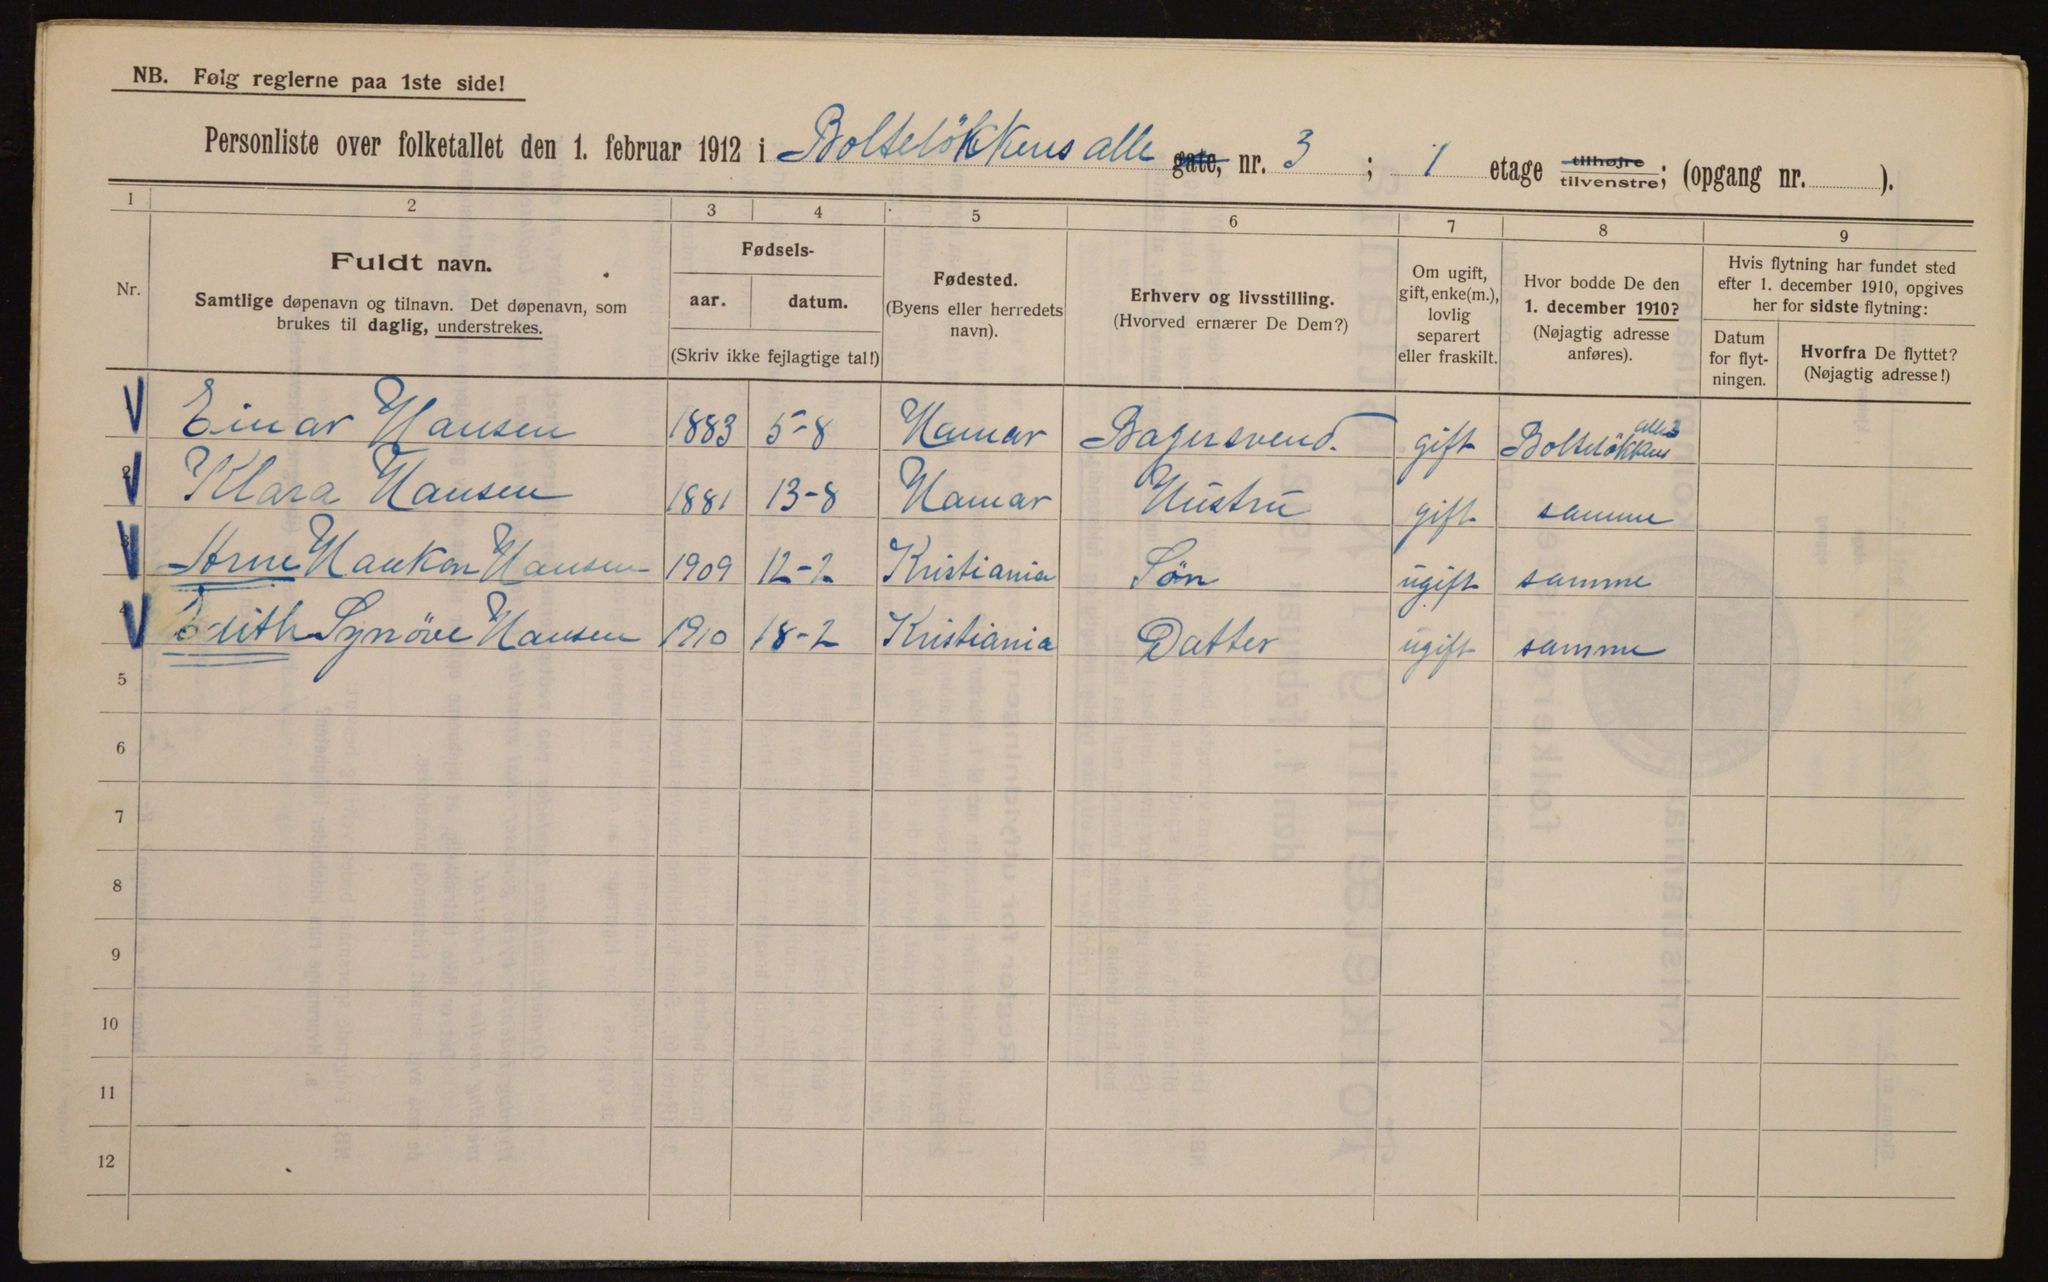 NB. Følg reglerne paa 1ste side!
Personliste over folketallet den 1. februar 1912 i Bolteløkkens alle gate, nr. 3 ; 1 etage tilhøjre tilvenstre; (opgang nr. ).
1 2 3 4 5 6 7 8 9
Nr.
Fuldt navn.
Samtlige døpenavn og tilnavn. Det døpenavn, som
brukes til daglig, understrekes.
Fødsels-
aar. datum.
(Skriv ikke fejlagtige tal!)
Fødested.
(Byens eller herredets
navn).
Erhverv og livsstilling.
(Hvorved ernærer De Dem?)
Om ugift,
gift, enke(m.),
lovlig
separert
eller fraskilt.
Hvor bodde De den
1. december 1910?
(Nøjagtig adresse
anføres).
Hvis flytning har fundet sted
efter 1. december 1910, opgives
her for sidste flytning:
Datum
for flyt-
ningen.
Hvorfra De flyttet?
(Nøjagtig adresse!)
Einar Hansen 1883 5-8 Hamar Bagersvend. gift Bolteløkkens alle 3
2 Klara Hansen 1881 13-8 Hamar Hustru gift samme
3 Arne Haakon Hansen 1909 12-2 Kristiania Søn ugift samme
4 Edith Synøve Hansen 1910 18-2 Kristiania Datter ugift samme
5
6
7
8
9
10
11
12